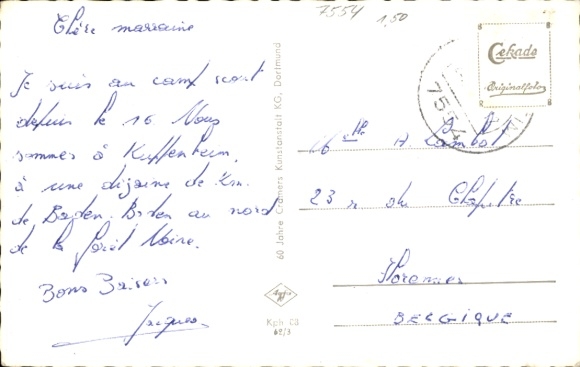 7554 1,50
Chère marraine
Je suis au camp scout
depuis le 16 Nous
sommes à Kuppenheim,
à une dizaine de Km.
de Baden-Baden au nord
de la forêt Noire.
Bons Baisers
Jacques
60 Jahre Cramers Kunstanstalt KG, Dortmund
Agfa
Kph CB
62/3
Cekade
Originalfoto
755
Melle A. Lambot
23 r du Chapitre
Florennes
BELGIQUE